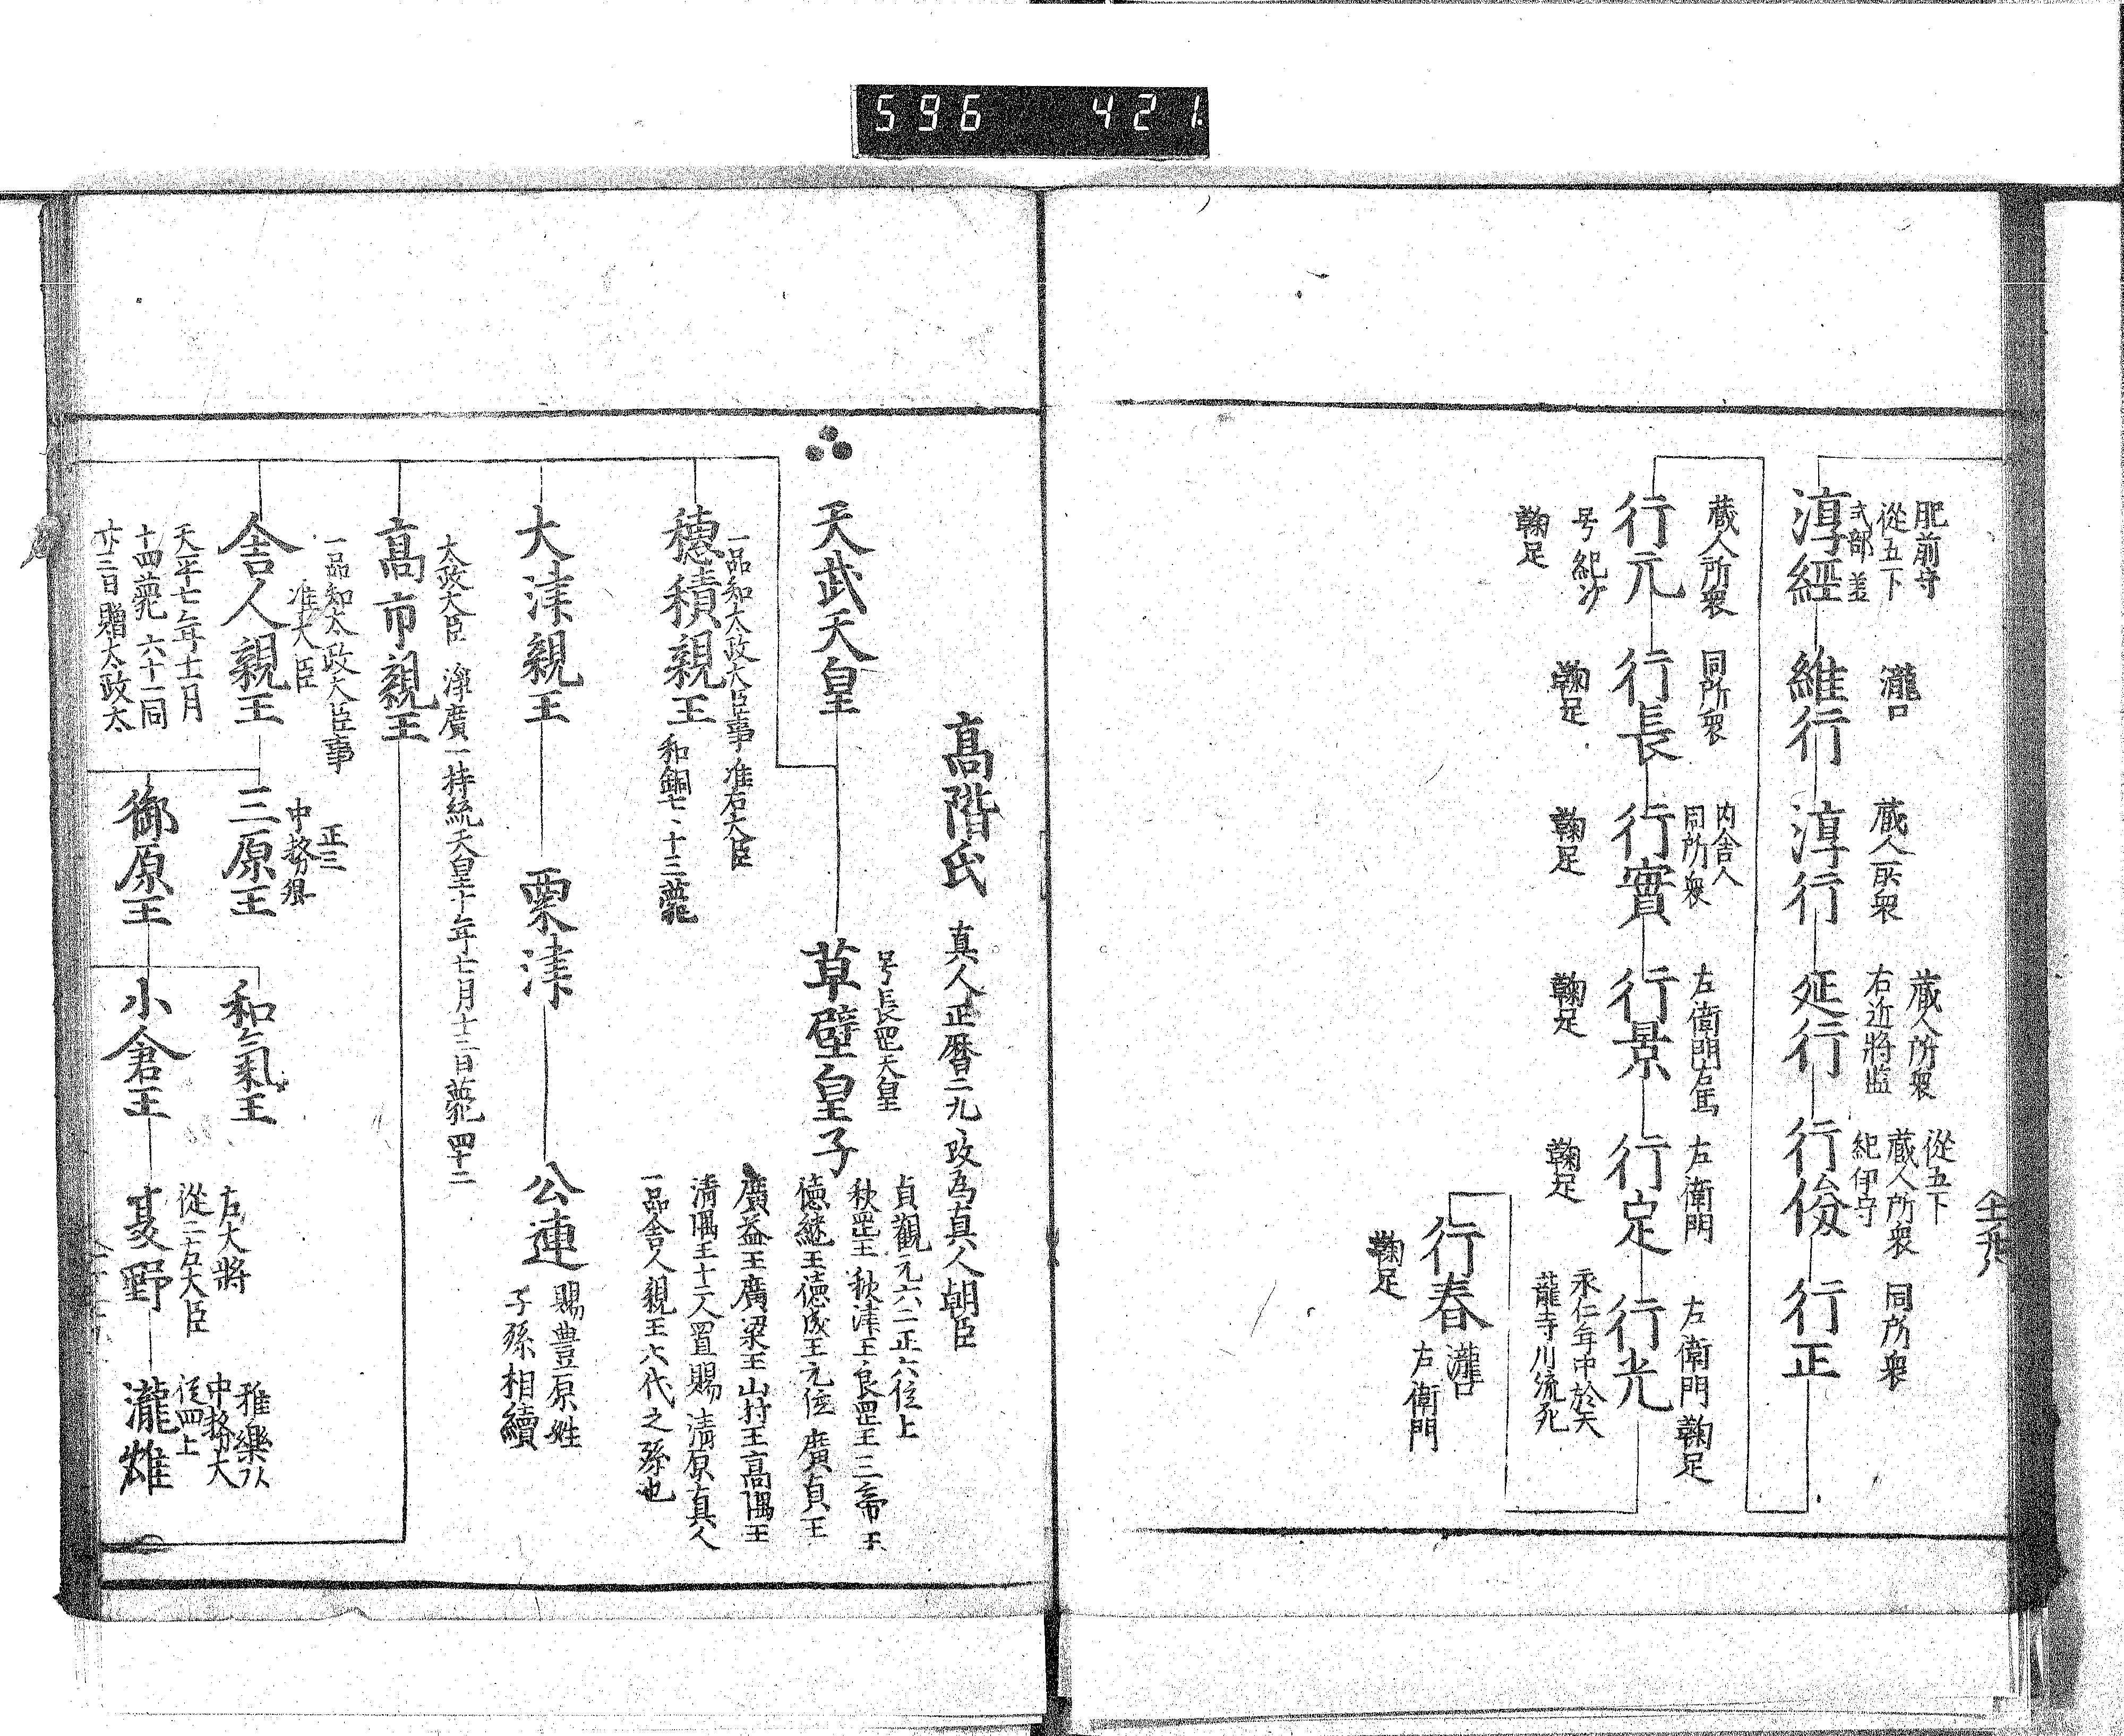 596 421
肥前守
從五下
式部丞
淳經
瀧口
維行
蔵人所衆
淳行
蔵人所衆
右近將監
延行
從五下
蔵人所衆
紀伊守
行俊
同所衆
行正
蔵人所衆
行元
号紀沙
鞠足
同所衆
行長
鞠足
内舎人
同所衆
行實
鞠足
左衛門左馬
行景
鞠足
左衛門
行定
鞠足
左衛門 鞠足
行光
永仁年中於天
龍寺川流死
行春
瀧口
左衛門
鞠足
高階氏 真人正暦二九改為真人朝臣
天武天皇
号長岡天皇
草壁皇子
貞觀元六二正六位上
秋罡王秋津王良罡王三斎王
德継王德成王无位廣貞王
廣益王廣梁王山村王高隅王
清隅王十二人置賜清原真人
一品舎人親王六代之孫也
一品知太政大臣事准右大臣
穂積親王
和銅七、十三薨
大津親王
粟津
公連
賜豊原姓
子孫相續
太政大臣 淨廣一持統天皇十年七月十二日薨 四十二
高市親王
一品知太政大臣事
准大臣
舎人親王
天平七年十一月
十四薨 六十一同
廿二日贈太政大
正三
中務卿
三原王
御原王
和氣王
小倉王
左大將
從二右大臣
夏野
雅樂頭
中務大
從四上
瀧雄